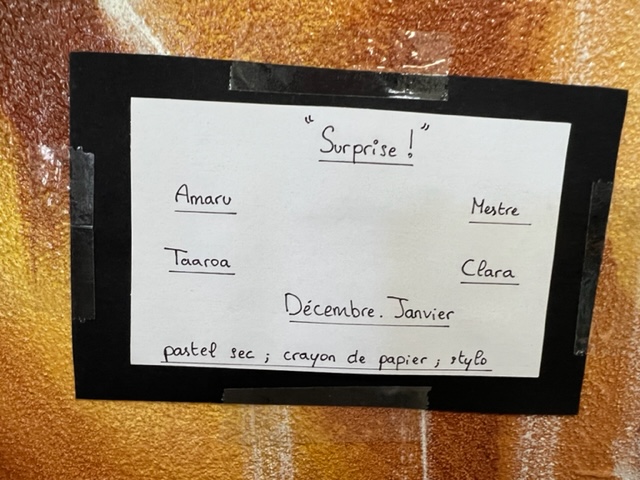 "Surprise !"
Amaru Mestre
Taaroa Clara
Décembre. Janvier
pastel sec ; crayon de papier ; stylo